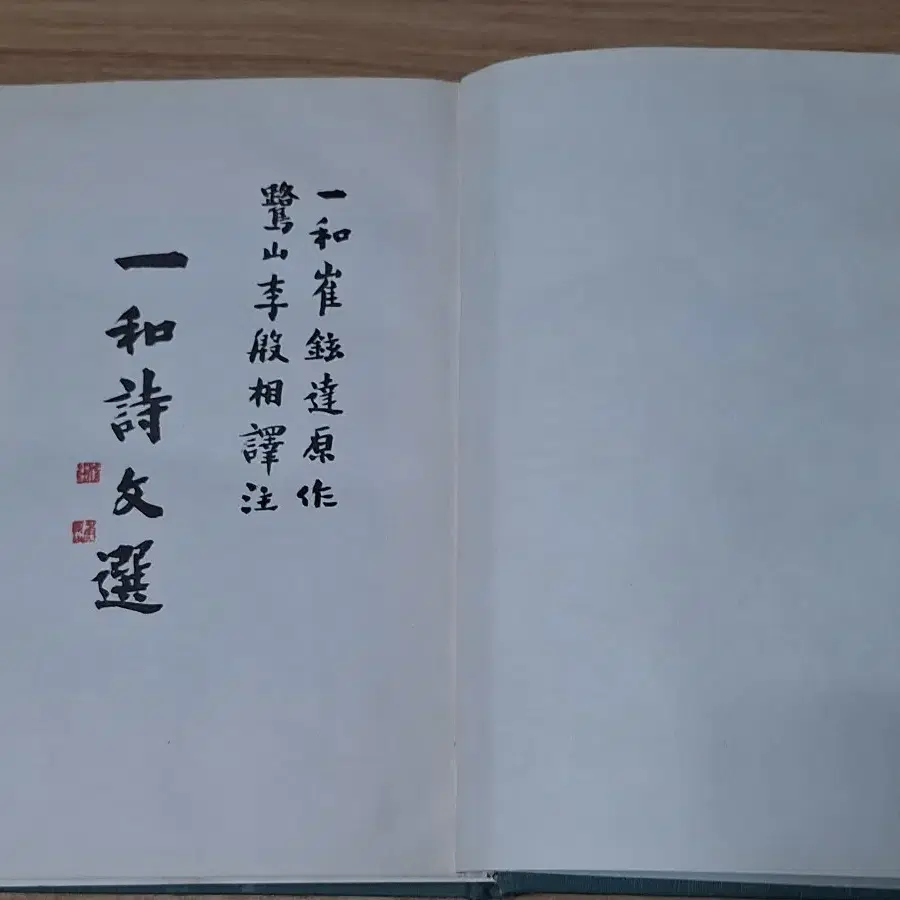 一和崔鉉達原作
鷺山李殷相譯注
一和詩文選